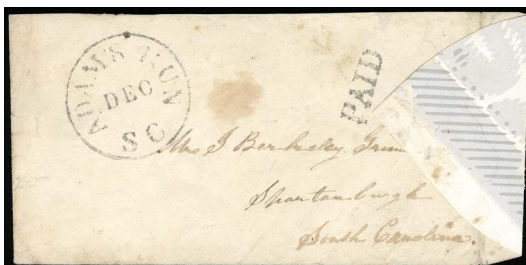 ADAMS RUN
DEC
S C
PAID
Mrs J Berkeley Grim
Spartanburgh
South Carolina.